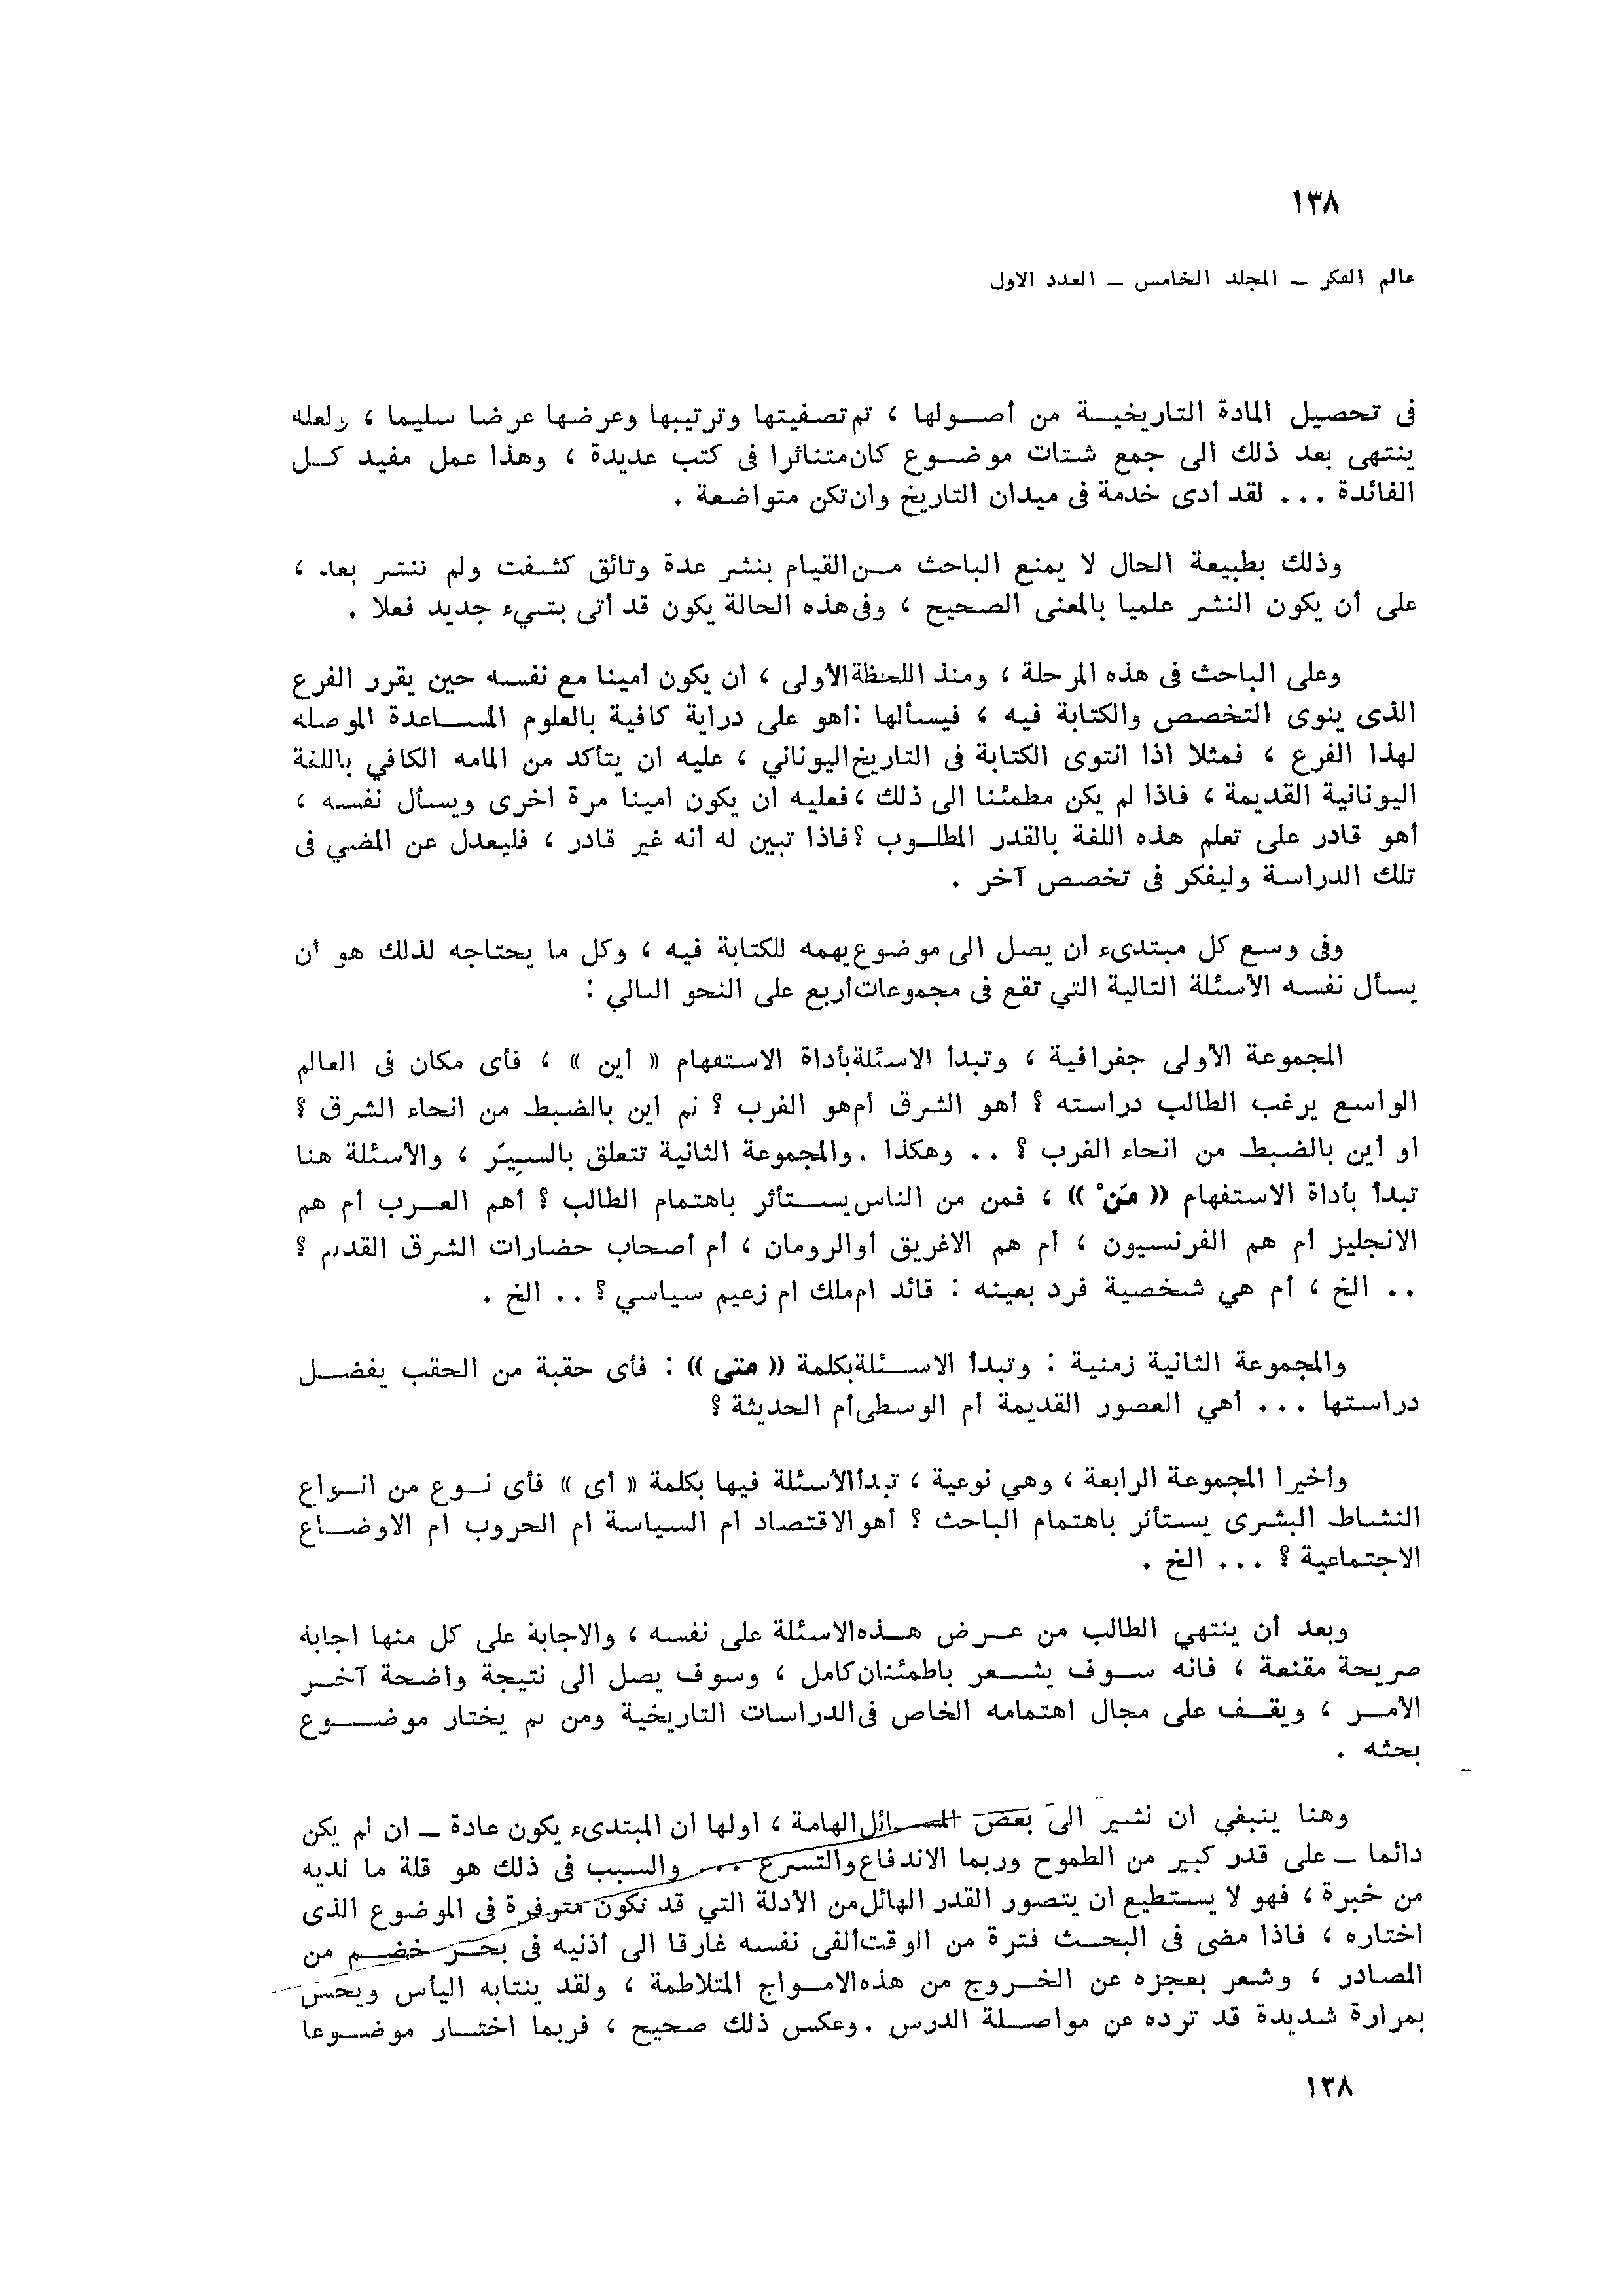 ١٣٨
عالم الفكر ـ المجلد الخامس ـ العدد الاول
فى تحصيل المادة التاريخيـــة من أصــولها ، ثم تصفيتها وترتيبها وعرضها عرضا سليما ، ولعله
ينتهى بعد ذلك الى جمع شتات موضــوع كان متناثرا فى كتب عديدة ، وهذا عمل مفيد كــل
الفائدة ... لقد أدى خدمة فى ميدان التاريخ وان تكن متواضعة .
وذلك بطبيعة الحال لا يمنع الباحث مــن القيام بنشر عدة وثائق كشفت ولم تنشر بعد ،
على أن يكون النشر علميا بالمعنى الصحيح ، وفى هذه الحالة يكون قد أتى بشيء جديد فعلا .
وعلى الباحث فى هذه المرحلة ، ومنذ اللحظة الأولى ، ان يكون أمينا مع نفسه حين يقرر الفرع
الذى ينوى التخصص والكتابة فيه ، فيسألها : أهو على دراية كافية بالعلوم المســـاعدة الموصلة
لهذا الفرع ، فمثلا اذا انتوى الكتابة فى التاريخ اليوناني ، عليه ان يتأكد من المامه الكافي باللغة
اليونانية القديمة ، فاذا لم يكن مطمئنا الى ذلك ، فعليه ان يكون امينا مرة اخرى ويسأل نفسه ،
أهو قادر على تعلم هذه اللغة بالقدر المطلــوب ؟ فاذا تبين له أنه غير قادر ، فليعدل عن المضي فى
تلك الدراسة وليفكر فى تخصص آخر .
وفى وسع كل مبتدىء ان يصل الى موضوع يهمه للكتابة فيه ، وكل ما يحتاجه لذلك هو أن
يسأل نفسه الأسئلة التالية التي تقع فى مجموعات أربع على النحو التالي :
المجموعة الأولى جغرافية ، وتبدأ الاسئلة بأداة الاستفهام « أين » ، فأى مكان فى العالم
الواسع يرغب الطالب دراسته ؟ أهو الشرق أم هو الغرب ؟ ثم اين بالضبط من انحاء الشرق ؟
او أين بالضبط من انحاء الغرب ؟ .. وهكذا . والمجموعة الثانية تتعلق بالسِيَر ، والأسئلة هنا
تبدأ بأداة الاستفهام « مَنْ » ، فمن من الناس يســـتأثر باهتمام الطالب ؟ أهم العــرب أم هم
الانجليز أم هم الفرنسيون ، أم هم الاغريق أو الرومان ، أم أصحاب حضارات الشرق القديم ؟
.. الخ ، أم هي شخصية فرد بعينه : قائد ام ملك ام زعيم سياسي ؟ .. الخ .
والمجموعة الثانية زمنية : وتبدأ الاســـئلة بكلمة « متى » : فأى حقبة من الحقب يفضــل
دراستها ... أهي العصور القديمة أم الوسطى أم الحديثة ؟
وأخيرا المجموعة الرابعة ، وهي نوعية ، تبدأ الأسئلة فيها بكلمة « أى » فأى نــوع من انــواع
النشاط البشرى يستأثر باهتمام الباحث ؟ أهو الاقتصاد ام السياسة ام الحروب ام الاوضــاع
الاجتماعية ؟ ... الخ .
وبعد أن ينتهي الطالب من عــرض هــذه الاسئلة على نفسه ، والاجابة على كل منها اجابة
صريحة مقنعة ، فانه ســوف يشــعر باطمئنان كامل ، وسوف يصل الى نتيجة واضحة آخــر
الأمــر ، ويقــف على مجال اهتمامه الخاص فى الدراسات التاريخية ومن ثم يختار موضـــوع
بحثه .
وهنا ينبغي ان نشير الى بعض المســائل الهامة ، اولها ان المبتدىء يكون عادة ـ ان لم يكن
دائما ـ على قدر كبير من الطموح وربما الاندفاع والتسرع ... والسبب فى ذلك هو قلة ما لديه
من خبرة ، فهو لا يستطيع ان يتصور القدر الهائل من الأدلة التي قد تكون متوفرة فى الموضوع الذى
اختاره ، فاذا مضى فى البحــث فترة من الوقت ألفى نفسه غارقا الى أذنيه فى بحــر خضــم من
المصادر ، وشعر بعجزه عن الخــروج من هذه الامــواج المتلاطمة ، ولقد ينتابه اليأس ويحس
بمرارة شديدة قد ترده عن مواصــلة الدرس . وعكس ذلك صحيح ، فربما اختــار موضــوعا
١٣٨